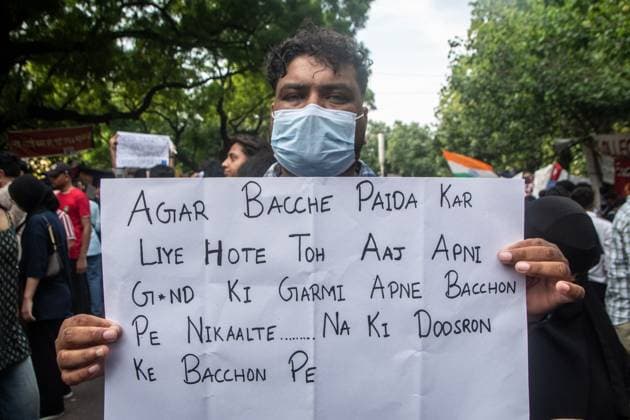 AGAR BACCHE PAIDA KAR
LIYE HOTE TOH AAJ APNI
G*ND KI GARMI APNE BACCHON
PE NIKAALTE........ NA KI DOOSRON
KE BACCHON PE